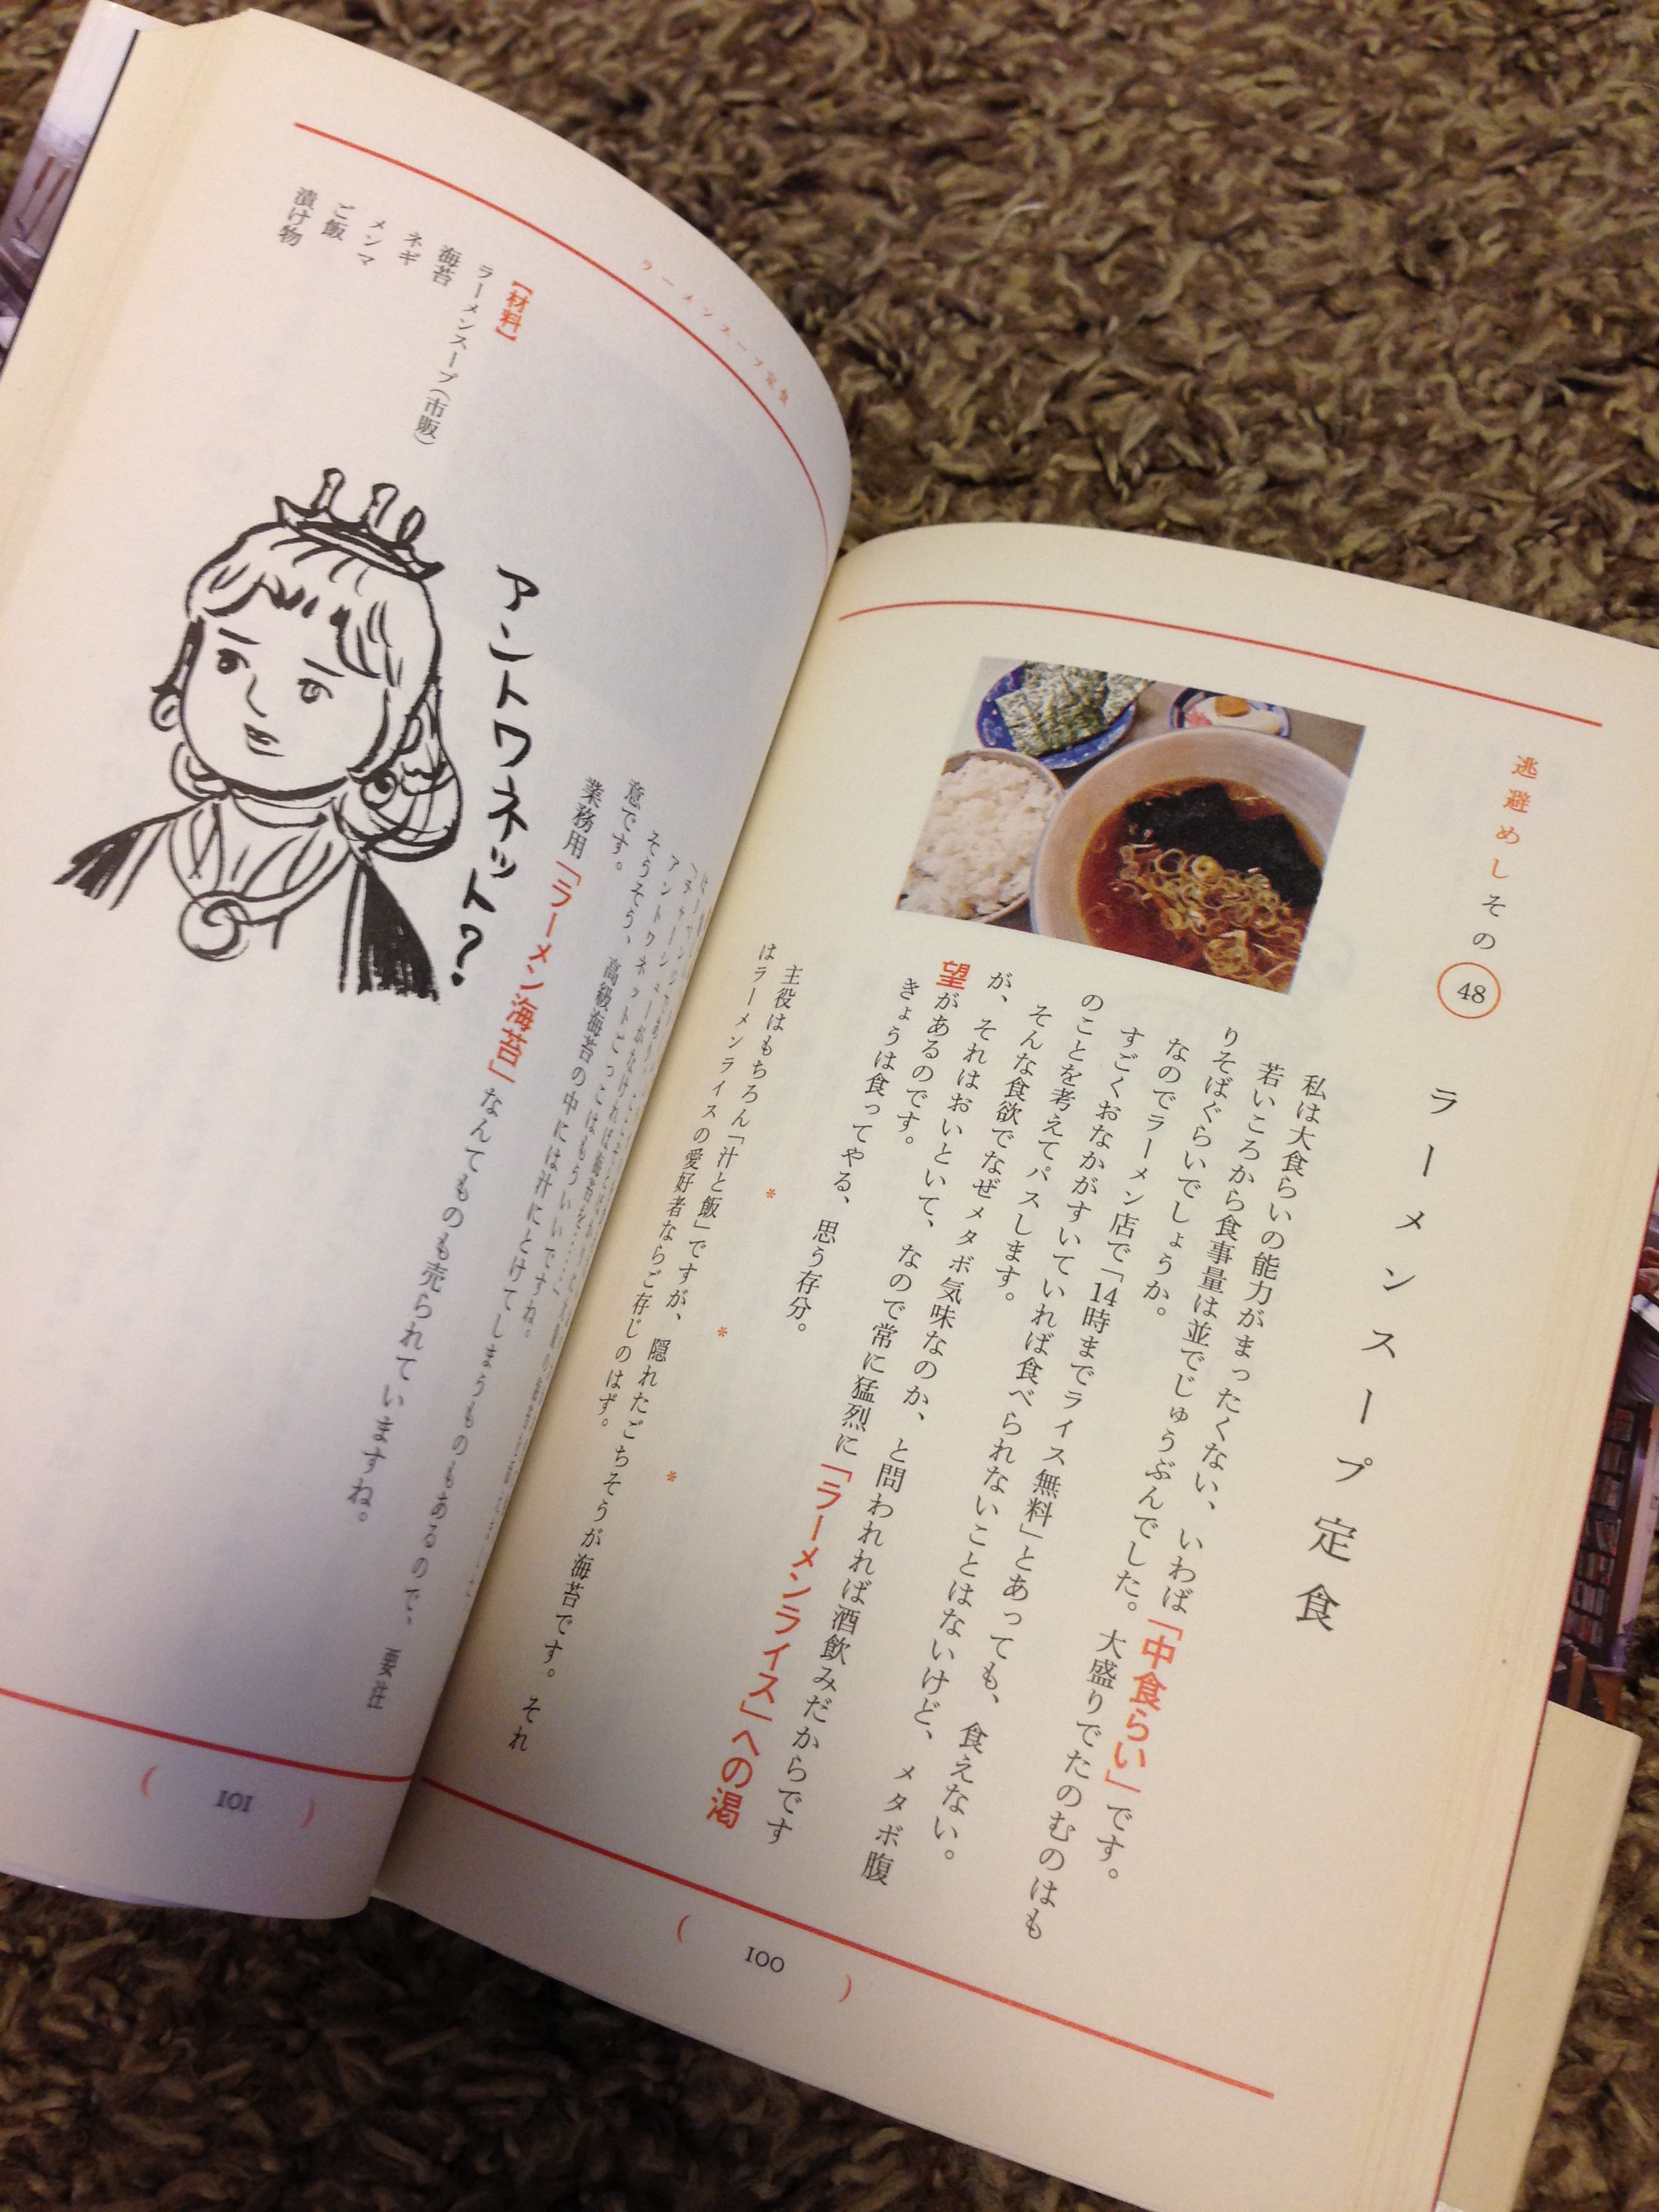 逃避めしその48
ラーメンスープ定食
私は大食らいの能力がまったくない、いわば「中食らい」です。
若いころから食事量は並でじゅうぶんでした。大盛りでたのむのはも
りそばぐらいでしょうか。
なのでラーメン店で「14時までライス無料」とあっても、食えない。
すごくおなかがすいていれば食べられないことはないけど、メタボ腹
のことを考えてパスします。
そんな食欲でなぜメタボ気味なのか、と問われれば酒飲みだからです
が、それはおいといて、なので常に猛烈に「ラーメンライス」への渇
望があるのです。
きょうは食ってやる、思う存分。
* * *
主役はもちろん「汁と飯」ですが、隠れたごちそうが海苔です。それ
はラーメンライスの愛好者ならご存じのはず。
100
ラーメンスープ定食
アントワネットごっこはもういいですね。
そうそう、高級海苔の中には汁にとけてしまうものもあるので、要注
意です。
業務用「ラーメン海苔」なんてものも売られていますね。
アントワネット?
【材料】
ラーメンスープ(市販)
海苔
ネギ
メンマ
ご飯
漬け物
101